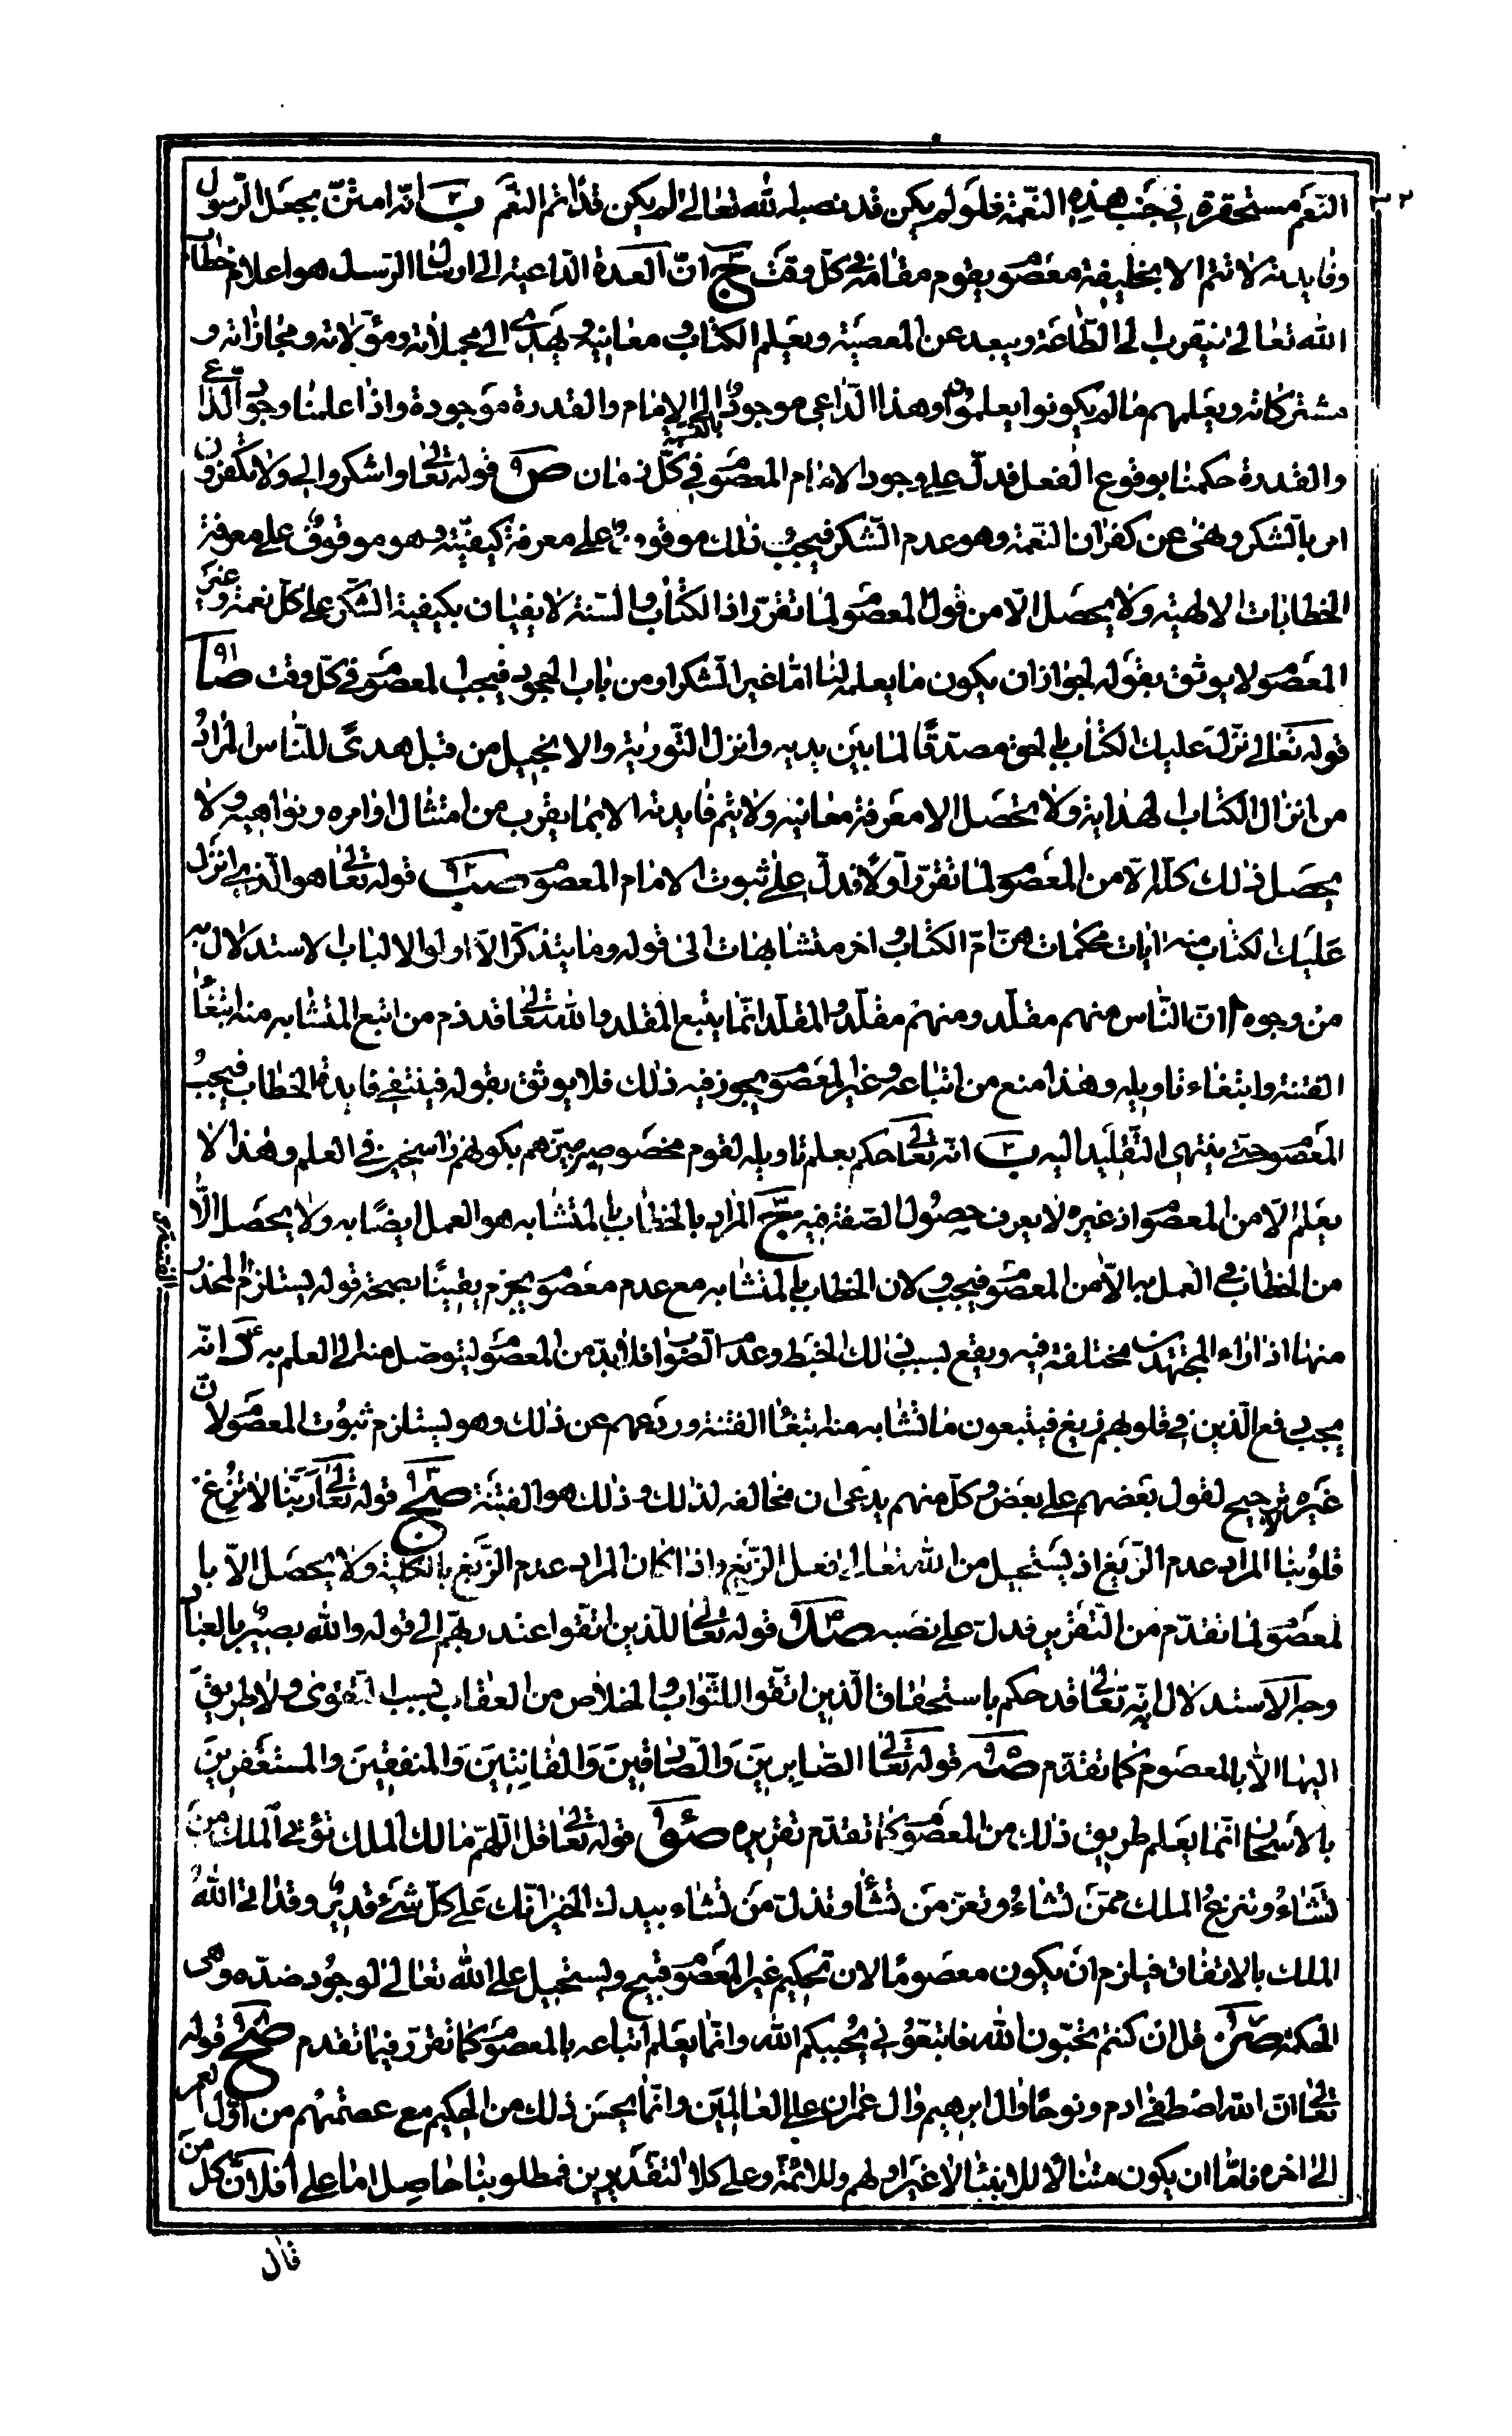 النعم مستحقرة في جنب هذه النعمة فلو لم يكن قد نصبه الله تعالى لم يكن قد اتم النعم ب انه امتن بجعل الرسول
وفايدته لا تتم الا بخليفة معصوم يقوم مقامه في كل وقت ج ان العدة الداعية الى ارسال الرسل هو اعلام خطاب
الله تعالى ليقرب الى الطاعة ويبعد عن المعصية ويعلم الكتاب ومعانيه ويهدي الى مجملاته ومؤلاته ومجازاته و
مشتركاته ويعلمهم ما لم يكونوا يعلمون وهذا الداعي موجود الى الامام والقدرة موجودة واذا علمنا وجود الداعي
والقدرة حكمنا بوقوع الفعل فدل على وجود الامام المعصوم في كل زمان ص قوله تعالى واشكروا لي ولا تكفرون
امر بالشكر ونهى عن كفران النعمة وهو عدم الشكر فيجب ذلك موقوف على معرفة كيفيته وهو موقوف على معرفة
الخطابات الالهية ولا يحصل الا من قول المعصوم لما تقرر اذ الكتاب والسنة لا يفيان بكيفية الشكر على كل نعمة وغير
المعصوم لا يوثق بقوله لجواز ان يكون ما يعلمه لنا اما غير الشكر او من باب الجحود فيجب المعصوم في كل وقت صا
قوله تعالى نزل عليك الكتاب بالحق مصدقا لما بين يديه وانزل التورية والانجيل من قبل هدى للناس المراد
من انزال الكتاب الهداية ولا تحصل الا معرفة معانيه ولا يتم فايدته الا بما يقرب من امتثال اوامره ونواهيه ولا
يحصل ذلك كله الا من المعصوم لما تقرر اولا فدل على ثبوت الامام المعصوم صب قوله تعالى هو الذي انزل
عليك الكتاب منه ايات محكمات هن ام الكتاب واخر متشابهات الى قوله وما يتذكر الا اولوا الالباب الاستدلال به
من وجوه ا ان الناس منهم مقلد ومنهم مقلد والمقلد انما يتبع المقلد والله تعالى قد ذم من اتبع المتشابه منه ابتغاء
الفتنة وابتغاء تاويله وهذا منع من اتباعه وغير المعصوم يجوز فيه ذلك فلا يوثق بقوله فينتفي فايدة الخطاب فيجب
المعصوم حتى ينتهي التقليد اليه ب انه تعالى حكم بعلم تاويله لقوم مخصوصين ميزهم بكونهم راسخين في العلم وهذا لا
يعلم الا من المعصوم اذ غيره لا يعرف حصول الصفة فيه ج المراد بالخطاب بالمتشابه هو العمل ايضا به ولا يحصل الا
من الخطاب في العمل به الا من المعصوم فيجب ولان الخطاب بالمتشابه مع عدم معصوم يجزم يقينا بصحة قوله يستلزم المحذر
منها اذ اراء المجتهدين مختلفة فيه ويقع بسبب ذلك الخبط وعدم الصواب فلا بد من المعصوم ليتوصل منه الى العلم به د انه
يجب دفع الذين في قلوبهم زيغ فيتبعون ما تشابه منه ابتغاء الفتنة وردعهم عن ذلك وهو يستلزم ثبوت المعصوم لان
غيره لا ترجيح لقول بعضهم على بعض وكل منهم يدعى ان مخالفه لذلك وذلك هو الفتنة صج قوله تعالى ربنا لا تزغ
قلوبنا المراد عدم الزيغ اذ يستحيل من الله تعالى فعل الزيغ واذا كان المراد عدم الزيغ بالكلية ولا يحصل الا با
لمعصوم لما تقدم من التقرير فدل على نصبه صد قوله تعالى للذين اتقوا عند ربهم الى قوله والله بصير بالعباد
وجه الاستدلال انه تعالى قد حكم باستحقاق الذين اتقوا للثواب والخلاص من العقاب بسبب التقوى ولا طريق
اليها الا بالمعصوم كما تقدم صه قوله تعالى الصابرين والصادقين والقانتين والمنفقين والمستغفرين
بالاسحار انما يعلم طريق ذلك من المعصوم كما تقدم تقريره صو قوله تعالى قل اللهم مالك الملك تؤتي الملك من
تشاء وتنزع الملك ممن تشاء وتعز من تشاء وتذل من تشاء بيدك الخير انك على كل شئ قدير وقد اتى الله
الملك بالاتفاق فيلزم ان يكون معصوما لان تحكيم غير المعصوم قبيح ويستحيل على الله تعالى لوجود ضده وهى
الحكمة صز قل ان كنتم تحبون الله فاتبعوني يحببكم الله وانما يعلم اتباعه بالمعصوم كما تقرر فيما تقدم صح قوله
تعالى ان الله اصطفى ادم ونوحا وال ابرهيم وال عمران على العالمين وانما يحسن ذلك من الحكيم مع عصمتهم من اول العمر
الى اخره فاما ان يكون متناولا للانبياء لا غير او لهم وللائمة وعلى كلا التقديرين فمطلوبنا حاصل اما على ا فلان كل من
قال